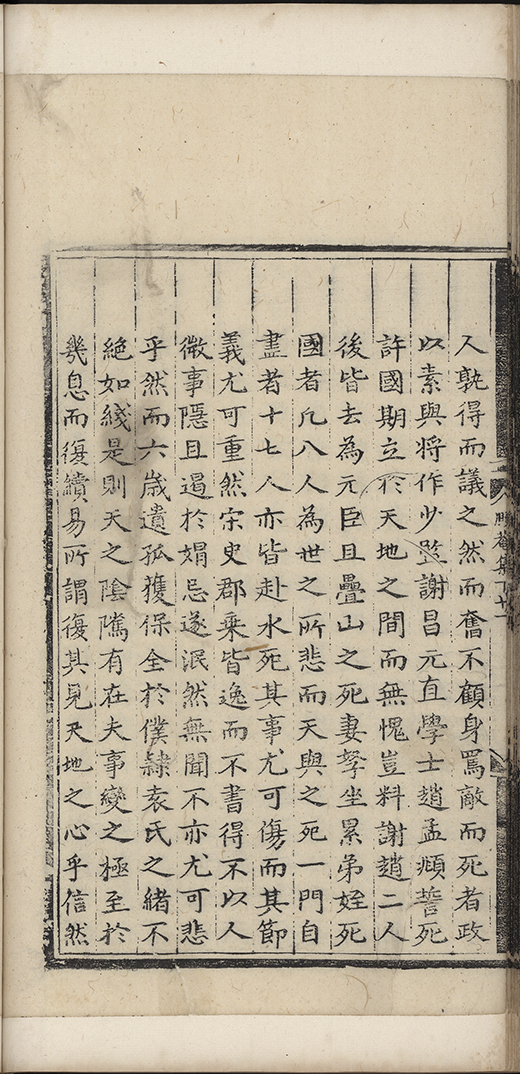 人孰得而議之然而奮不顧身罵敵而死者政
以素與将作少監謝昌元直學士趙孟頫誓死
許國期立於天地之間而無愧豈料謝趙二人
後皆去為元臣且疊山之死妻孥坐累弟姪死
國者凡八人為世之所悲而天與之死一門自
盡者十七人亦皆赴水死其事尤可傷而其節
義尤可重然宋史郡乗皆逸而不書得不以人
微事隱且遏於媢忌遂泯然無聞不亦尤可悲
乎然而六歲遺孤獲保全於僕隸袁氏之緒不
絶如綫是則天之陰隲有在夫事變之極至於
幾息而復續易所謂復其見天地之心乎信然